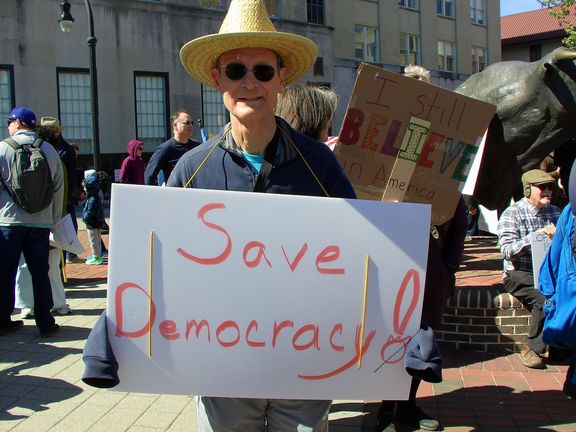 Save
Democracy!
I still
BELIEVE
in
America